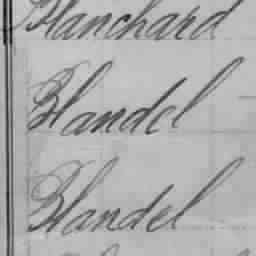 Blanchard
Blandel
Blandel